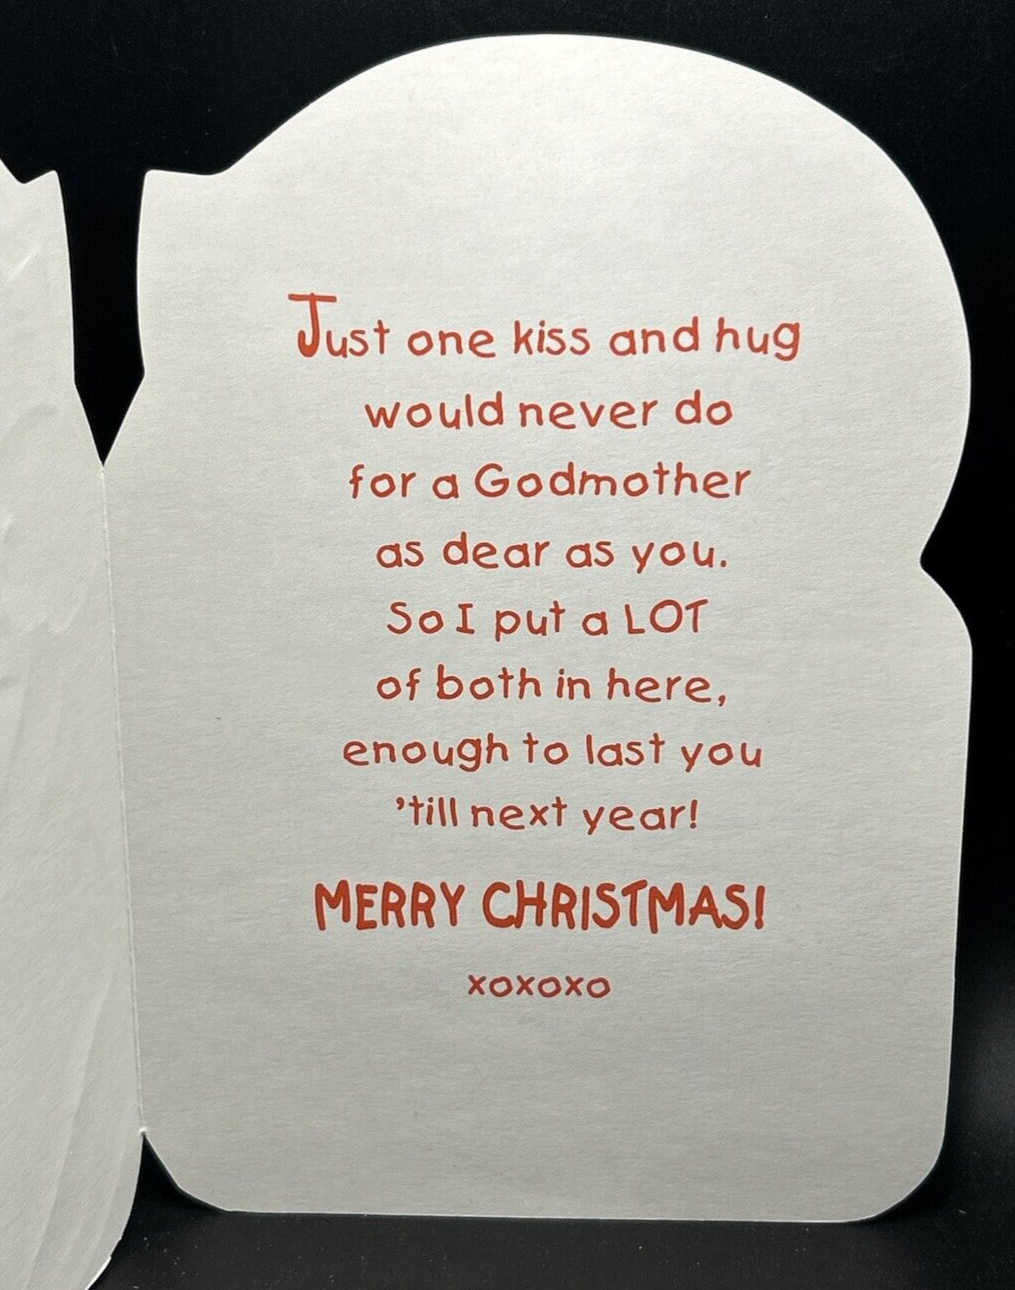 Just one kiss and hug
would never do
for a Godmother
as dear as you.
So I put a LOT
of both in here,
enough to last you
'till next year!
MERRY CHRISTMAS!
xoxoxo